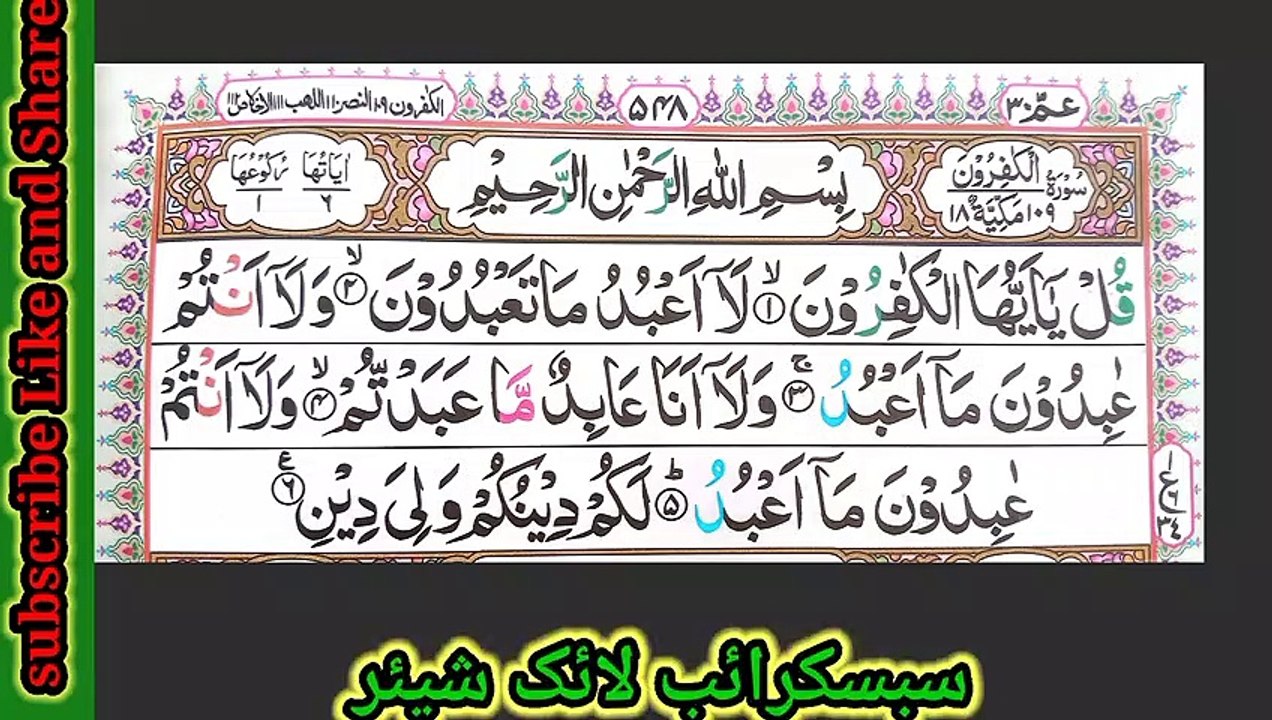 subscribe Like and Share
عمّ ٣٠
٥٤٨
الكٰفرون ١٠٩ النصر ١١٠ اللهب ١١١
سُوْرَةُ الْكٰفِرُوْنَ
١٠٩ مَكِّيَّةٌ ١٨
بِسْمِ اللهِ الرَّحْمٰنِ الرَّحِيْمِ
اٰيَاتُهَا ٦
رُكُوْعُهَا ١
قُلْ يٰۤاَيُّهَا الْكٰفِرُوْنَ ۙ﴿١﴾ لَاۤ اَعْبُدُ مَا تَعْبُدُوْنَ ۙ﴿٢﴾ وَلَاۤ اَنْتُمْ
عٰبِدُوْنَ مَاۤ اَعْبُدُ ۚ﴿٣﴾ وَلَاۤ اَنَا عَابِدٌ مَّا عَبَدْتُّمْ ۙ﴿٤﴾ وَلَاۤ اَنْتُمْ
عٰبِدُوْنَ مَاۤ اَعْبُدُ ؕ﴿٥﴾ لَكُمْ دِيْنُكُمْ وَلِيَ دِيْنِ ﴿٦﴾ ع
سبسکرائب لائک شیئر